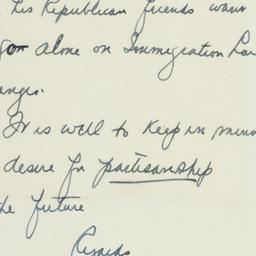 his Republican friends want
go alone on Immigration Law
anges.
It is well to keep in mind
desire for partisanship
the future
Regards